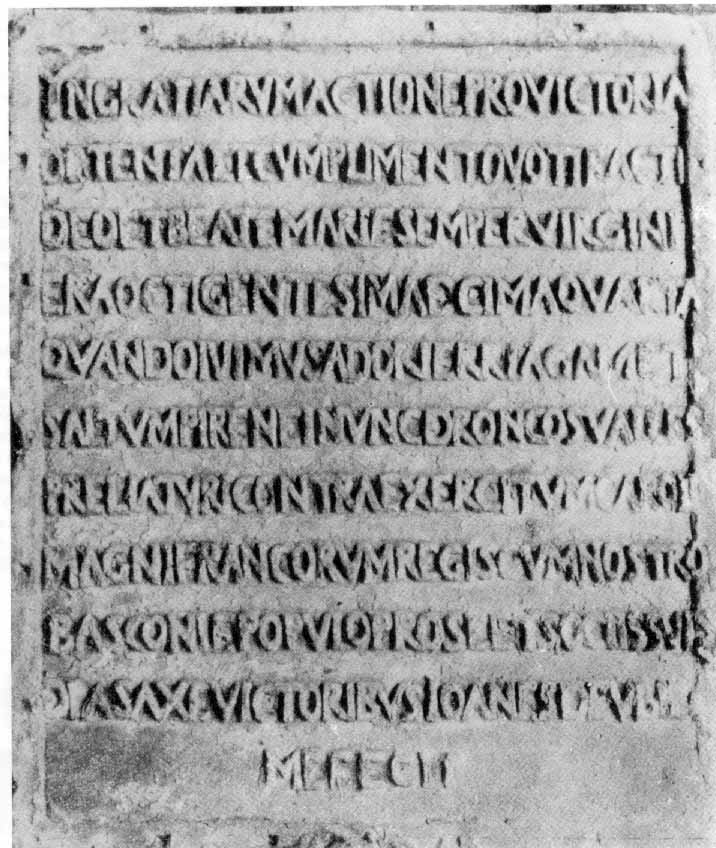 INGRATIARVMACTIONEPROVICTORIA
OBTENTAETCVMPLIMENTOVOTIFACTI
DEOETBEATEMARIESEMPERVIRGINI
ERAOCTIGENTESIMADECIMAQVARTA
QVANDOIVIMVSAD
SALTVMPIRENEINVNCDRONCOSVALLES
PRELIATVRICONTRAEXERCITVMCAROLI
MAGNIFRANCORVMREGISCVMNOSTRO
BASCONIEPOPVLOPRO
VICTORIBVSIOANES
MEFECIT